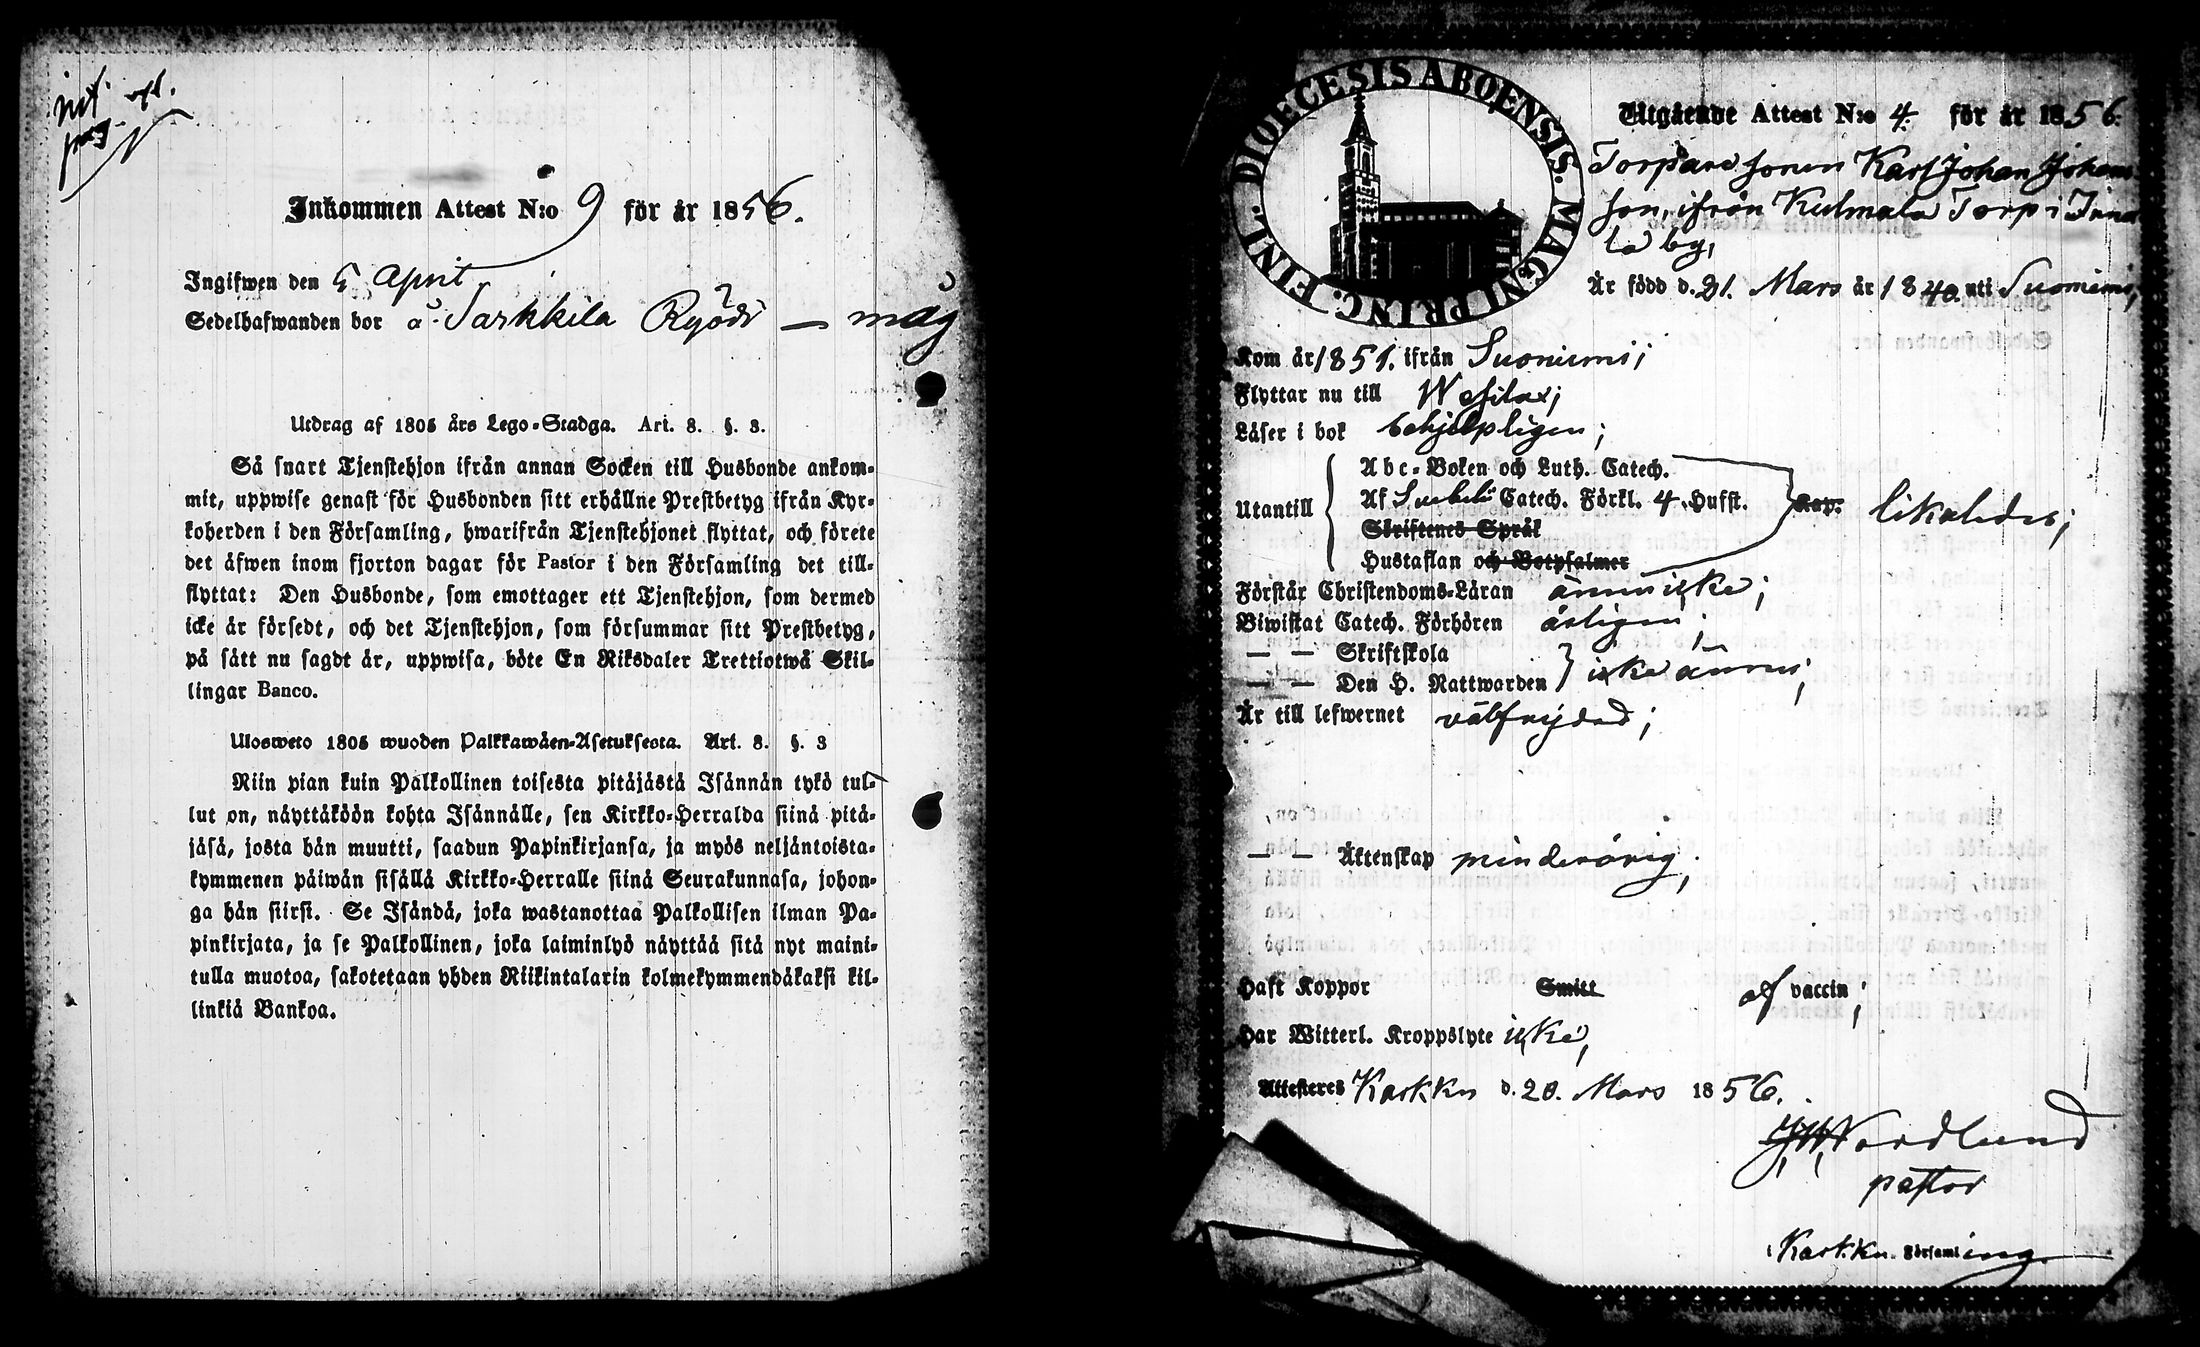 Inkommen Attest N:o 9 för år 1856.
Ingifwen den 5 April
Sedelhafwanden bor å Sarkkila Ryödi — mag
Utdrag af 1805 års Lego-Stadga. Art. 8. §. 3.
Så snart Tjenstehjon ifrån annan Socken till Husbonde ankom-
mit, uppwise genast för Husbonden sitt erhållne Prestbetyg ifrån Kyr-
koherden i den Församling, hwarifrån Tjenstehjonet flyttat, och förete
det äfwen inom fjorton dagar för Pastor i den Församling det till-
flyttat: Den Husbonde, som emottager ett Tjenstehjon, som dermed
icke är försedt, och det Tjenstehjon, som försummar sitt Prestbetyg,
på sätt nu sagdt är, uppwisa, böte En Riksdaler Trettiotwå Skil-
lingar Banco.
Ulosweto 1805 wuoden Palkkawäen-Asetuksesta. Art. 8. §. 3
Niin pian kuin Palkollinen toisesta pitäjästä Isännän tykö tul-
lut on, näyttäköön kohta Isännälle, sen Kirkko-Herralda siinä pitä-
jäsä, josta hän muutti, saadun Papinkirjansa, ja myös neljäntoista-
kymmenen päiwän sisällä Kirkko-Herralle siinä Seurakunnasa, johon-
ga hän siirsi. Se Isändä, joka wastanottaa Palkollisen ilman Pa-
pinkirjata, ja se Palkollinen, joka laiminlyö näyttää sitä nyt maini-
tulla muotoa, sakotetaan yhden Riikintalarin kolmekymmendäkaksi kil-
linkiä Bankoa.
DIOECESIS ABOENSIS. MAGNI PRINC. FINL.
Utgående Attest N:o 4. för år 1856.
Torpare sonen Karl Johan Johans
son, ifrån Kulmala Torp i Inna
la by,
Är född d. 21. Mars år 1840 uti Suoniemi,
Kom år 1851. ifrån Suoniemi;
Flyttar nu till Wesilax;
Läser i bok behjelpligen;
Abc-Boken och Luth. Catech.
Utantill Af Swebelii Catech. Förkl. 4. Hufst. Kap. likaledes;
Skriftenes Språk
Hustaflan och Botpsalmer
Förstår Christendoms-Läran ännu icke;
Biwistat Catech. Förhören årligen;
— — Skriftskola
— — Den H. Nattwarden } icke ännu;
Är till lefwernet välfrejdad;
— — Äktenskap minderårig;
Haft Koppor Smitt af vaccin;
Har Witterl. Kroppslyte icke,
Attesteres Karkku d. 20. Mars 1856.
Nordlund
pastor
i Karkku Församling